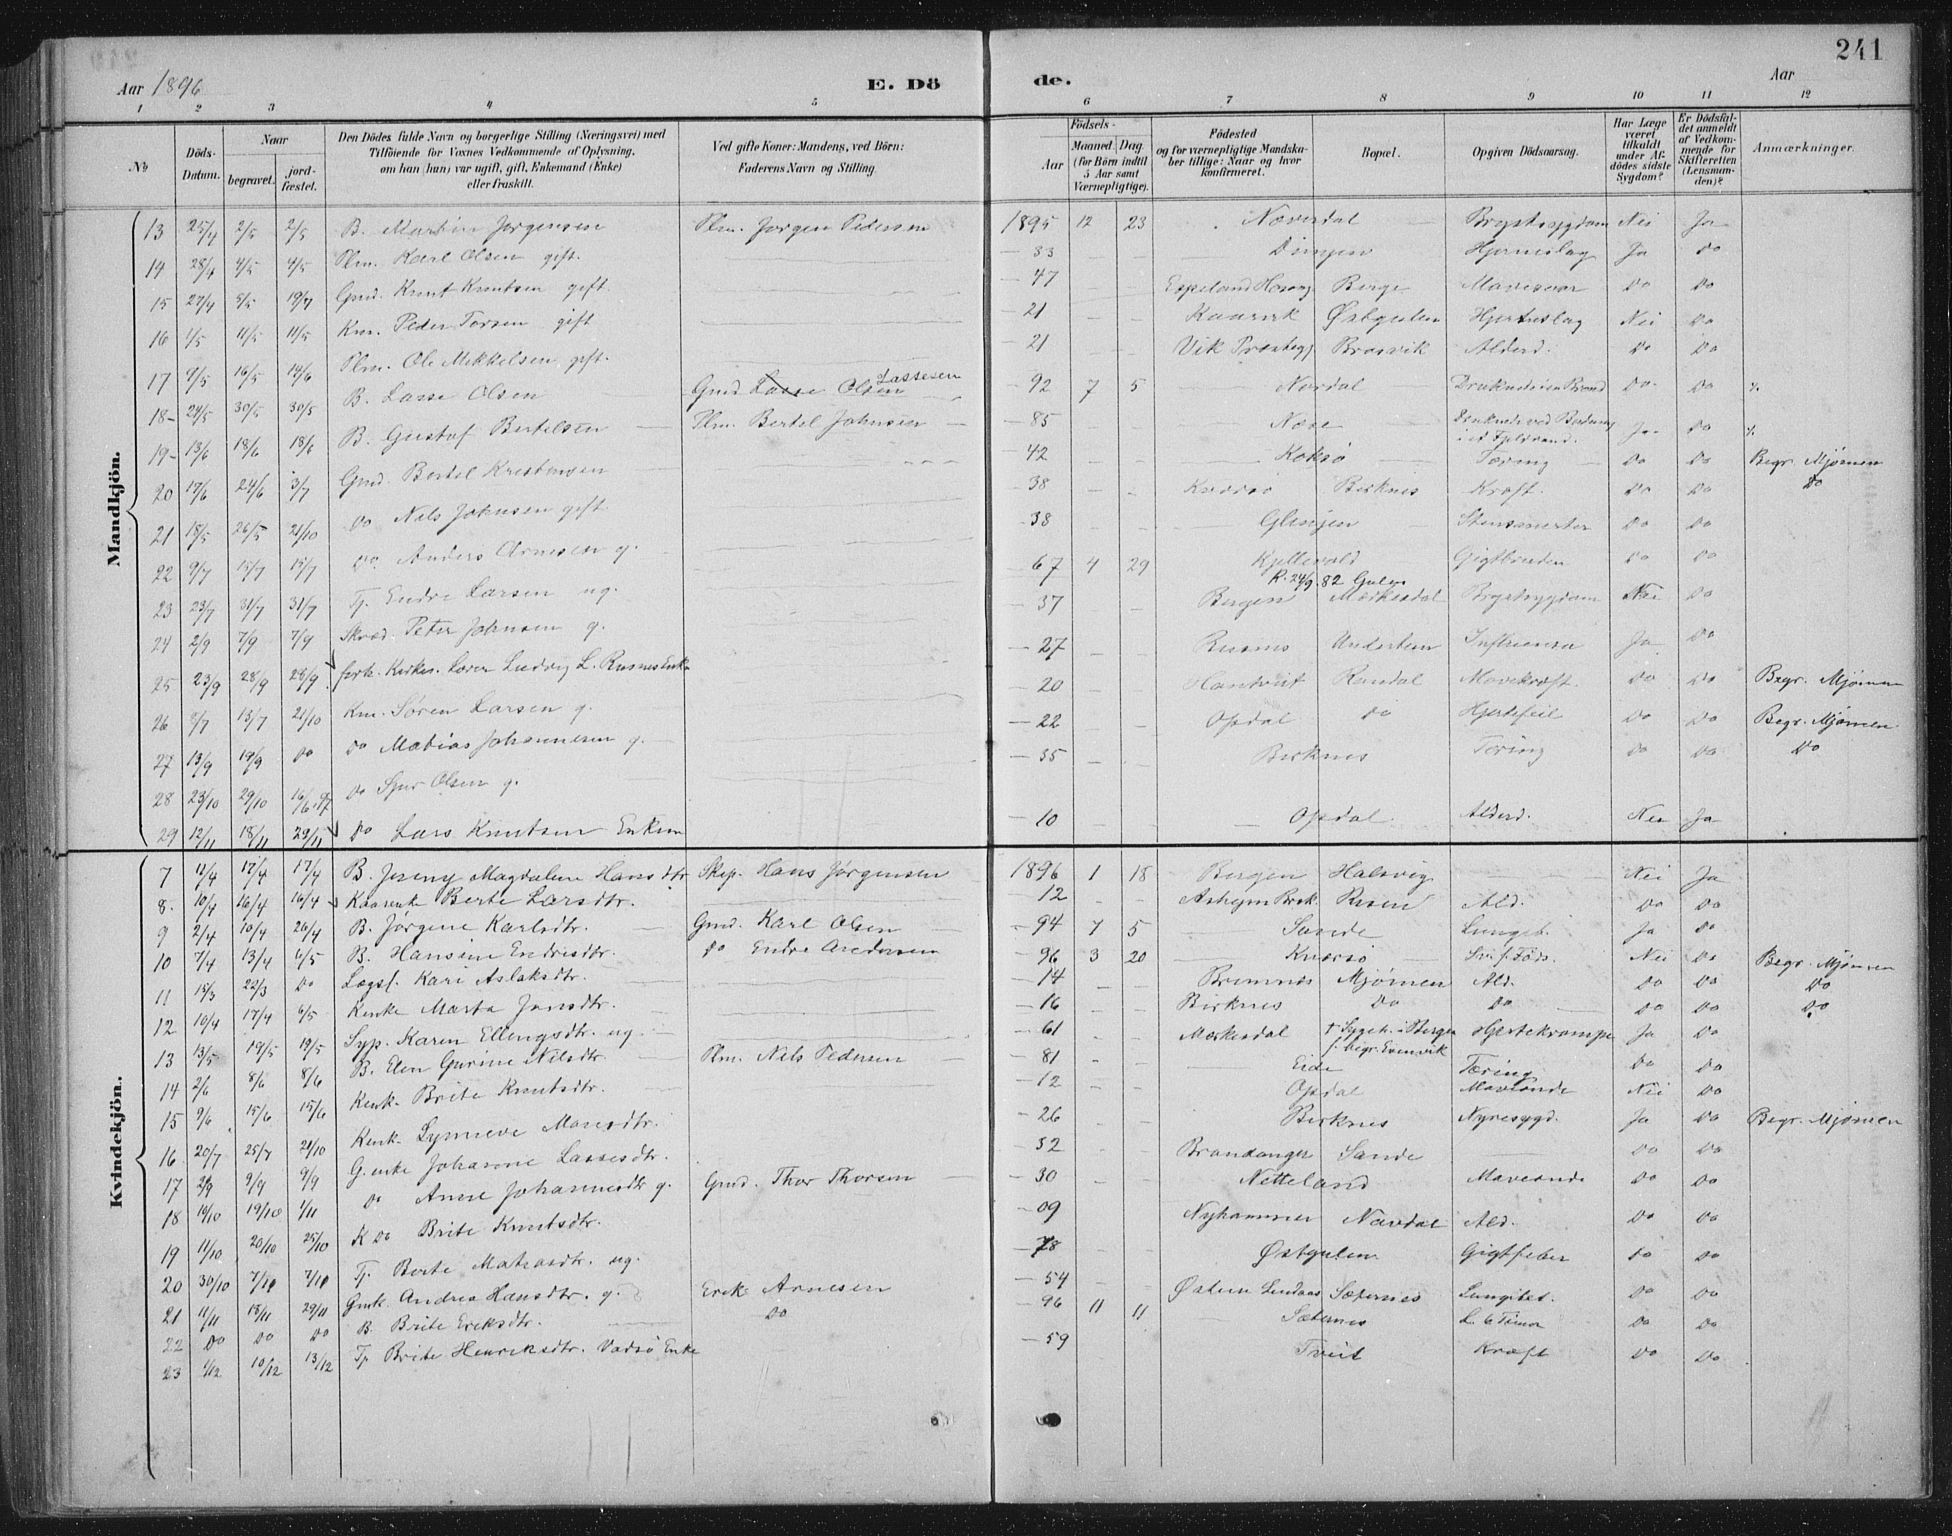 241
Aar 1896
E. Dö
de.
Aar
1 2 3 4 5 6 7 8 9 10 11 12
No
Döds-Datum.
Naar
begravet.
jord-fæstet.
Den Dödes fulde Navn og borgerlige Stilling (Næringsvei) med
Tilföiende for Voxnes Vedkommende af Oplysning,
om han (hun) var ugift, gift, Enkemand (Enke)
eller fraskilt.
Ved gifte Koner: Mandens, ved Börn:
Faderens Navn og Stilling.
Födsels-
Aar
Maaned.
Dag.
(for Börn indtil
5 Aar samt
Værnepligtige).
Födested
og for værnepligtige Mandska-
ber tillige: Naar og hvor
konfirmeret.
Bopæl.
Opgiven Dödsaarsag.
Har Læge
været
tilkaldt
under Af-
dödes sidste
Sygdom?
Er Dödsfal-
det anmeldt
af Vedkom-
mende for
Skifteretten
(Lensman-
den)?
Anmærkninger.
Mandkjön.
13 25/4 2/5 2/5 B. Martin Jørgensen Plm. Jørgen Pedersen 1895 12 23 Næverdal Brystsygdom Nei Ja
14 28/4 4/5 4/5 Plm. Karl Olsen gift. 33 Dingen Hjerneslag Ja Do
15 27/4 5/5 19/7 Gmd. Knut Knutsen gift 47 Espeland Berge Do Do
16 1/5 11/5 11/5 Km. Peder Torsen gift 21 Kaarvik Østgulen Hjerteslag Nei Do
17 9/5 16/5 14/6 Plm. Ole Mikkelsen gift. 21 Vik Brosvik Alderd. Do Do
18 24/5 30/5 30/5 B. Lasse Olsen Gmd. Lasse Olsen Lassesen 92 7 5 Nordal Do Do
19 13/6 18/6 18/6 B. Gustaf Bertelsen Plm. Bertel Johnsen 85 Næse Ja Do
20 17/6 24/6 3/7 Gmd. Bertel Kristensen 42 Kokso Tæring Do Do Begr. Mjømen
21 18/5 26/5 21/10 Do Nils Johnsen gift 38 Birknes Kræft. Do Do Do
22 9/7 15/7 15/7 Do Anders Arnesen g. 38 Glenjen Do Do
23 23/7 31/7 31/7 Tj. Endre Larsen ug. 67 4 29 Kjellevold K. 24/9 82 Gulen Gigtbruden Do Do
24 2/9 7/9 7/9 Skræd. Peter Johnsen g. 37 Bergen Mærkesdal Brystsygdom Nei Do
25 23/9 28/9 28/9 forh. Kirkes. Lærer Ludvig L. Risnes Enkm 27 Risnes Undertun Influensa Ja Do
26 7/7 13/7 21/10 Km. Søren Larsen g. 20 Hantveit Randal Mavekræft Do Do Begr. Mjømen
27 13/9 19/9 Do Do Matias Johannesen g. 22 Opdal Do Hjertefeil Do Do Begr. Mjømen
28 23/10 29/10 16/6 97 Do Sjur Olsen g. 35 Birknes Tæring Do Do Do
29 12/11 18/11 29/11 Do Lars Knutsen Enkem 10 Opdal Alderd. Nei Ja
Kvindekjön.
7 11/4 17/4 17/4 B. Jenny Magdalene Hansdtr Skip. Hans Jørgensen 1896 1 18 Bergen Halsvig Nei Ja
8 10/4 16/4 16/4 Kaarenke Berte Larsdtr. 12 Risen Ald. Do Do
9 2/4 10/4 26/4 B. Jørgine Karlsdtr. Gmd. Karl Olsen 94 7 5 Sande Lungeb. Ja Do
10 7/4 13/4 6/5 B. Hansine Endresdtr. Do Endre Andersen 96 3 20 Kversø Nei Do Begr. Mjømen
11 15/3 22/3 Do Lægsl. Kari Aslaksdtr. 14 Brimnes Mjømen Ald. Do Do Do
12 10/4 17/4 6/5 Kenke Marta Jonsdtr. 16 Birknes Do Do Do Do Do
13 13/5 19/5 19/5 Syp. Karen Ellengsdtr. ug. 61 Mærkesdal † Sygeh. i Bergen begr. Evenvik Hjertekrampe Ja Do
14 2/6 8/6 8/6 B. Elen Gurine Nilsdtr. Plm. Nils Pedersen 81 Eide Tæring Do Do
15 9/6 15/6 15/6 Kenk. Brite Knutsdtr. 12 Opdal Maveonde Nei Do
16 20/7 25/7 21/10 Kenk. Synneve Monsdtr. 26 Birknes Nyresygd. Ja Do Begr. Mjømen
17 2/9 9/9 9/9 G. enke Johanne Lassesdtr. 32 Brandanger Sande Do Do
18 14/10 19/10 1/11 Do Anne Johannesdtr g. Gmd. Thor Thorsen 30 Netteland Maveonde Do Do
19 11/10 20/10 25/10 K Do Brite Knutsdtr. 09 Nyhammer Nævdal Ald. Do Do
20 30/10 7/11 7/11 Tj. Berte Matiasdtr. ug. 78 Østgulen Gigtfeber Do Do
21 11/11 18/11 29/11 Gmk. Andrea Hansdtr. g. Erik Arnesen 54 Sæternes Lungebet. Do Do
22 Do Do Do B. Brite Eriksdtr. Do 96 11 11 Sæternes L. 6 Timer Do Do
23 1/12 10/12 13/12 Tj. Brite Henriksdtr. Vadsø Enke 59 Tveit Kræft Do Do